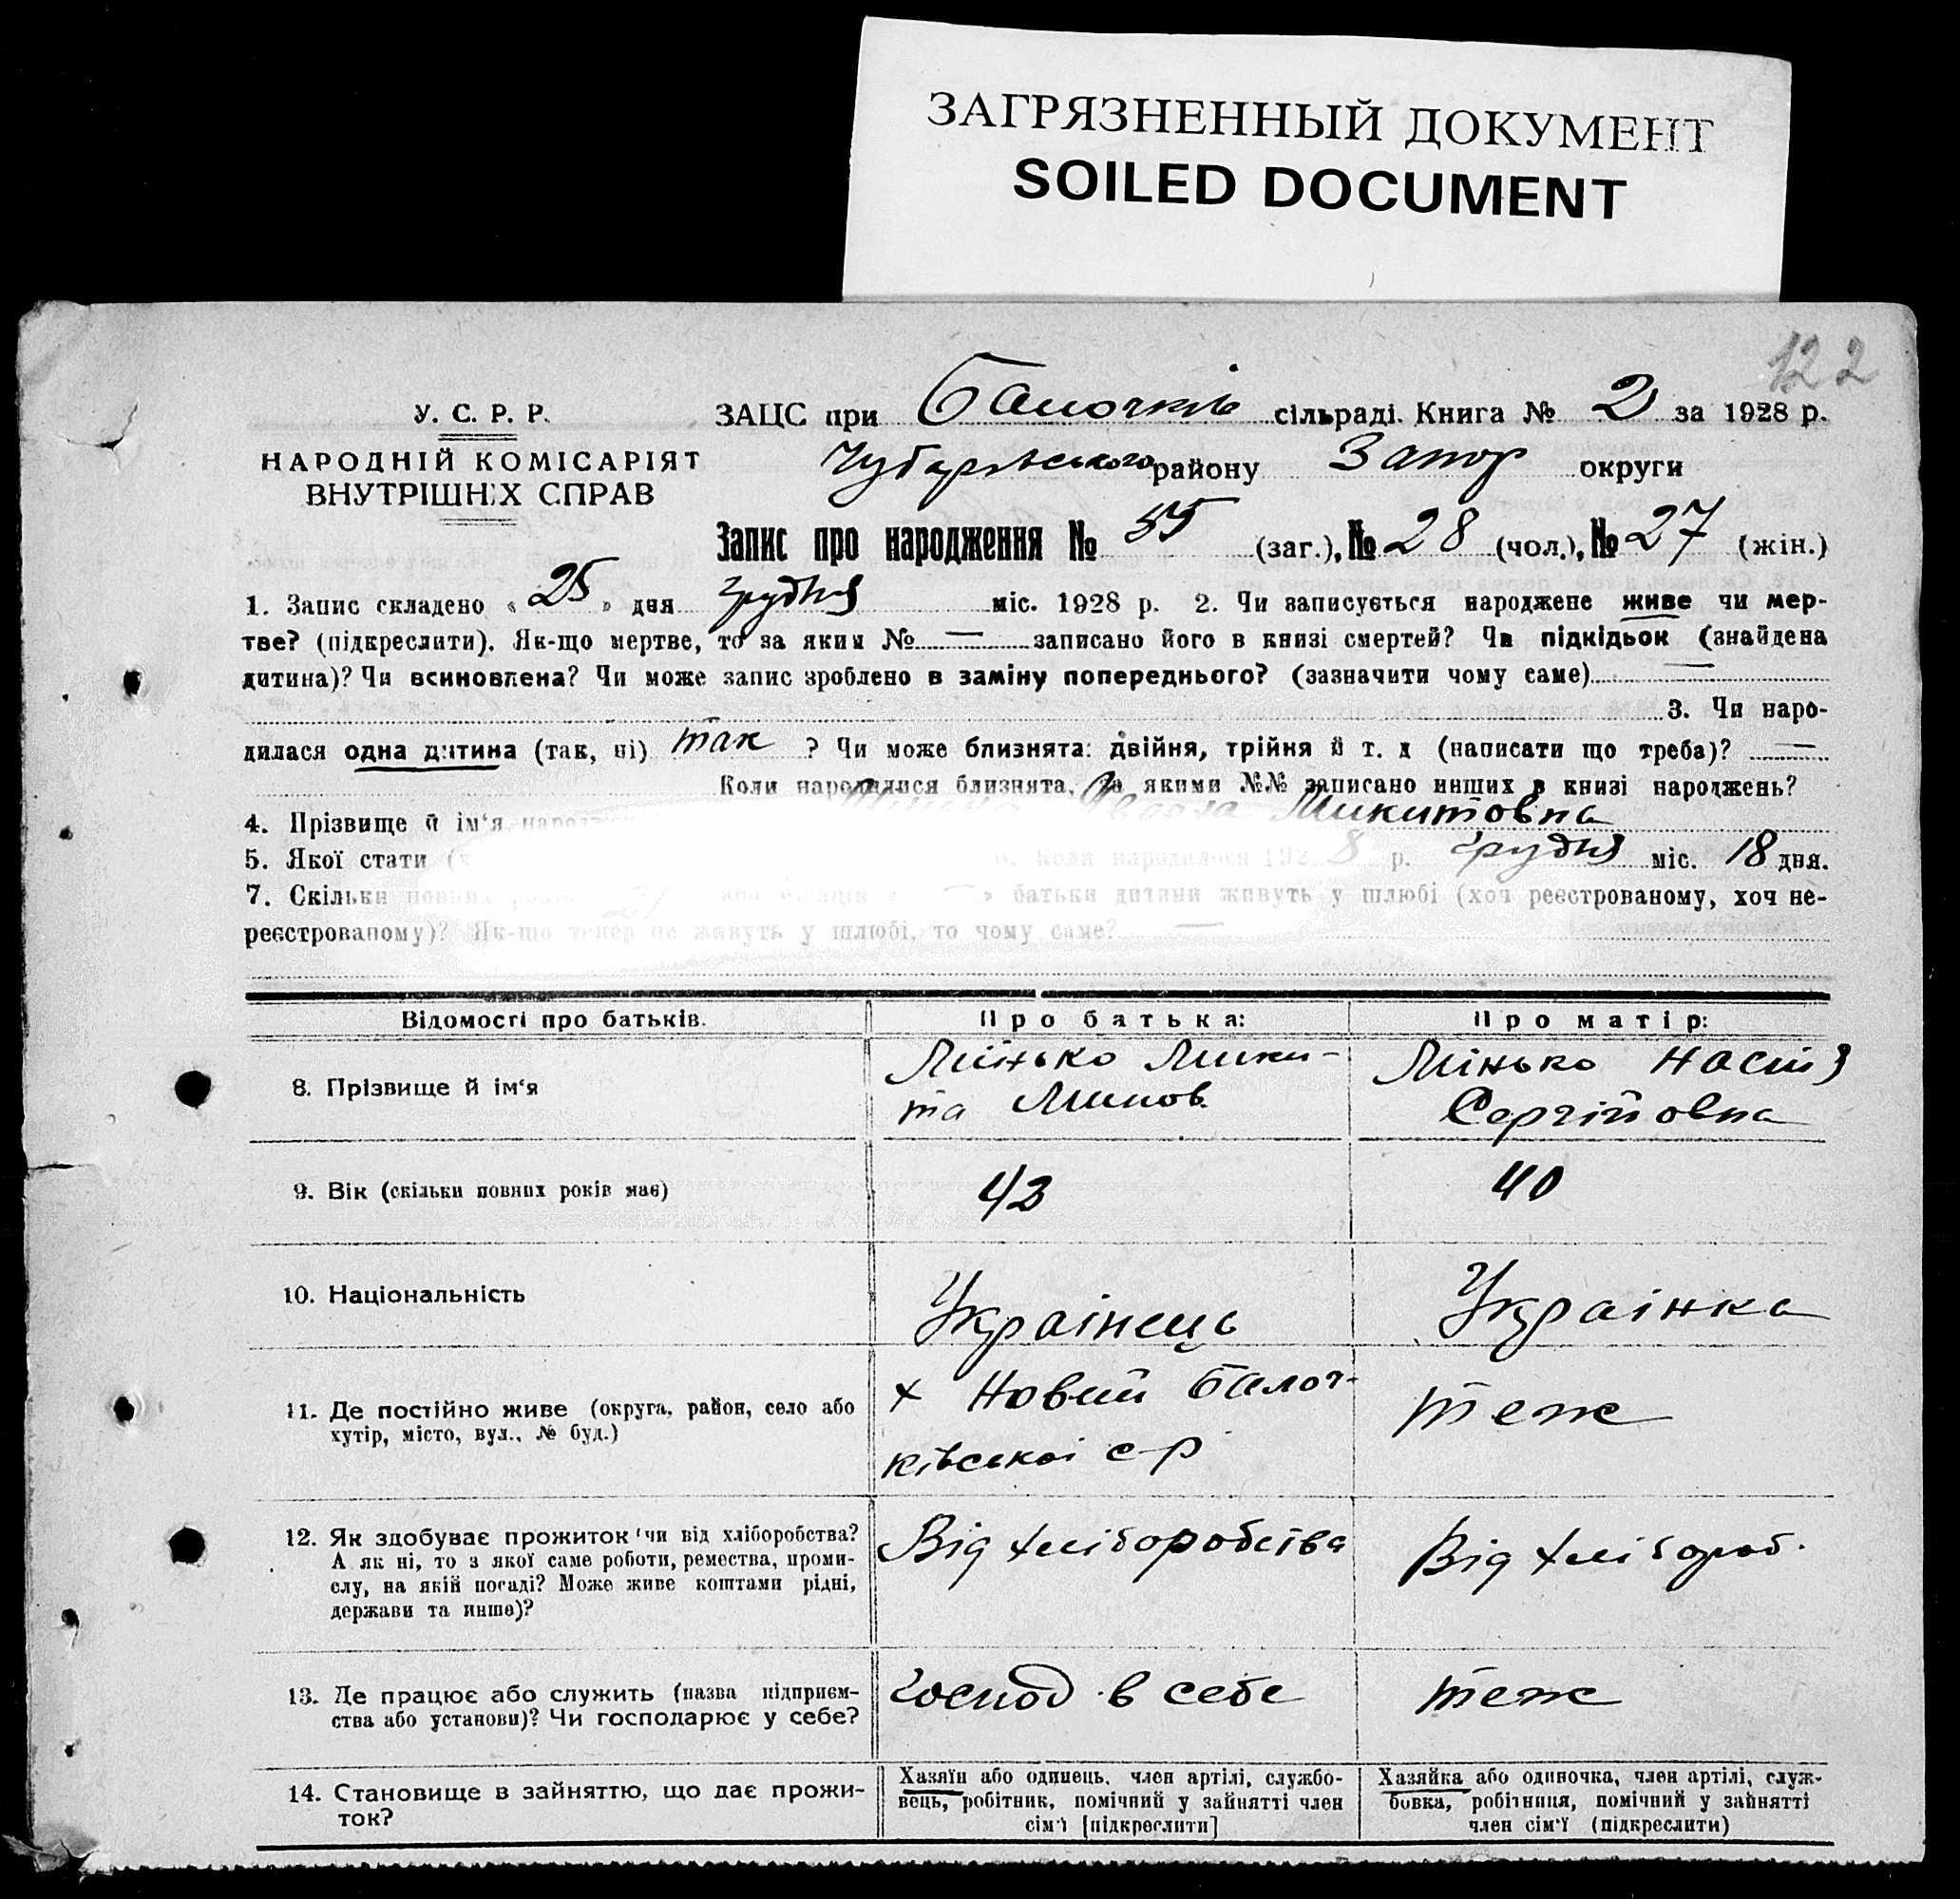 ЗАГРЯЗНЕННЫЙ ДОКУМЕНТ
SOILED DOCUMENT
122
У. С. Р. Р.
НАРОДНІЙ КОМІСАРІЯТ
ВНУТРІШНІХ СПРАВ
ЗАЦС при Балочків сільраді. Книга № 2 за 1928 р.
Чубарівського району Запор округи
Запис про народження № 55 (заг.), № 28 (чол.), № 27 (жін.)
1. Запис складено « 25 » дня грудня міс. 1928 р. 2. Чи записується народжене живе чи мер-
тве? (підкреслити). Як-що мертве, то за яким № — записано його в книзі смертей? Чи підкідьок (знайдена
дитина)? Чи всиновлена? Чи може запис зроблено в заміну попереднього? (зазначити чому саме) —
3. Чи наро-
дилася одна дитина (так, ні) так ? Чи може близнята: двійня, трійня й т. д (написати що треба)? —
Коли народилися близнята, за якими №№ записано инших в книзі народжень?
4. Прізвище й ім'я Микитовна
5. Якої стати 6. Коли народилося 192 8 р. грудня міс. 18 дня.
7. Скільки повних батьки дитини живуть у шлюбі (хоч реєстрованому, хоч не-
реєстрованому)? Як-що тепер не живуть у шлюбі, то чому саме? —
Відомості про батьків. Про батька: Про матір:
8. Прізвище й ім'я
Мінько Мики-
та Минов.
Мінько Настя
Сергійовна
9. Вік (скільки повних років має) 43 40
10. Національність Украінець Украінка
11. Де постійно живе (округа, район, село або
хутір, місто, вул., № буд.)
х Новий Балоч-
ківської с-р
теж
12. Як здобуває прожиток чи від хліборобства?
А як ні, то з якої саме роботи, ремества, проми-
слу, на якій посаді? Може живе коштами рідні,
держави та инше)?
Від хліборобства
Від хлібороб.
13. Де працює або служить (назва підприєм-
ства або установи)? Чи господарює у себе?
господ. в себе
теж
14. Становище в зайняттю, що дає прожи-
ток?
Хазяїн або одинець, член артілі, службо-
вець, робітник, помічний у зайнятті член
сім'ї [підкреслити]
Хазяйка або одиночка, член артілі, служ-
бовка, робітниця, помічний у зайнятті
член сім'ї (підкреслити)